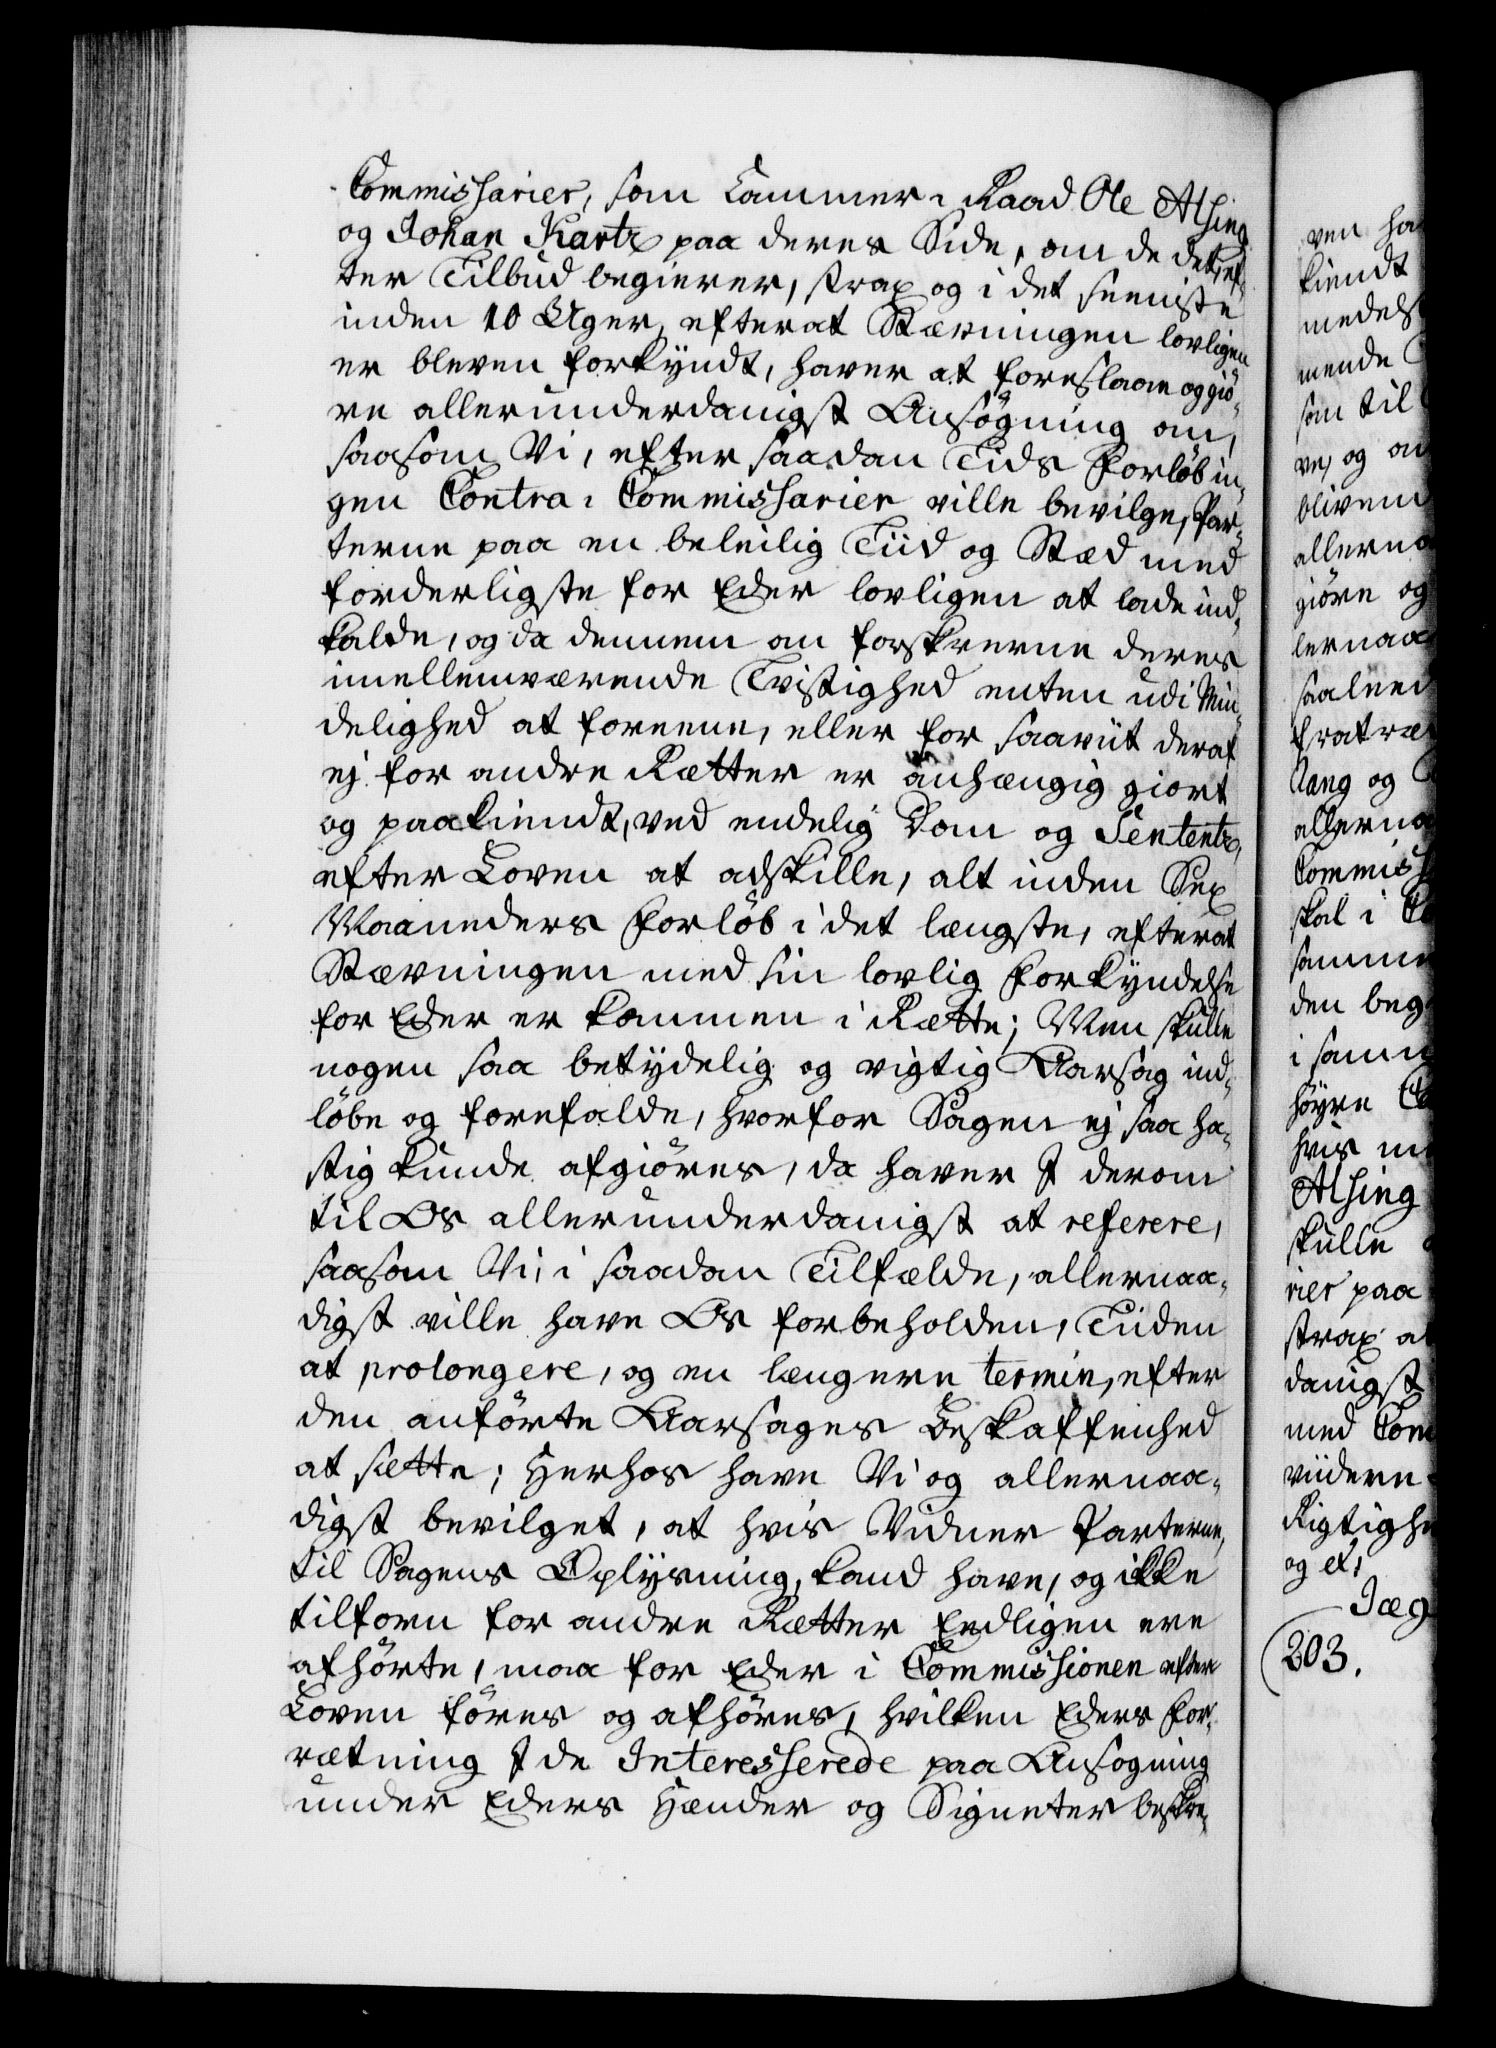 Commissarier, som Cammer-Raad Ole Alsing
og Johan Kartz paa deres Side, om de det, ef-
ter Tilbud begierer, strax og i det seeniste
inden 10 Uger, efterat Stævningen lovligen
er bleven forkyndt, haver at foreslaae og giö-
re allerunderdanigst Ansögning om,
saasom Vi, efter saadan Tids Forlöb in-
gen Contra-Commissarier ville bevilge, Par-
terne paa en beleilig Tiid og Stæd med
forderligste for Eder lovligen at lade ind-
kalde, og da dennem om forskrevne deres
imellemværende Tvistighed enten udi Min-
delighed at foreene, eller for saaviit deraf
ej for andre Rætter er anhængig giort
og paakiendt, ved endelig Dom og Sententz,
efter Loven at adskille, alt inden Sex
Maaneders Forlöb i det længste, efterat
Stævningen med sin lovlig Forkyndelse
for Eder er kommen i Rætte; Men skulle
nogen saa betydelig og vigtig Aarsag ind-
löbe og forefalde, hvorfor Sagen ej saa ha-
stig kunde afgiöres, da haver I derom
til Os allerunderdanigst at referere,
saasom Vi, i saadan Tilfælde, allernaa-
digst ville have Os forbeholden, Tiiden
at prolongere, og en længere termin, efter
den anförte Aarsages Beskaffenhed
at sætte; Herhos have Vi og allernaa-
digst bevilget, at hvis Vidner Parterne,
til Sagens Oplysning, kand have, og ikke
tilforn for andre Rætter Eedligen ere
afhörte, maa for Eder i Commissionen efter
Loven föres og afhöres, hvilken Eders For-
rætning I de Interesserede paa Ansögning
under Eders Hænder og Signeter beskre-
ven ha
kiendt
medelst
mende
som til
ve, og om
bliven
allerna
giöre og
lernaa
saaleed
fratræ
Rang og
allerna
Commiss
skal i Co
samme
den beg
i samm
höyre Co
hvis
Alsing
skulle
rier paa
strax at
danigst
med Com
viidere
Rigtighe
og et,
Jæg
203.